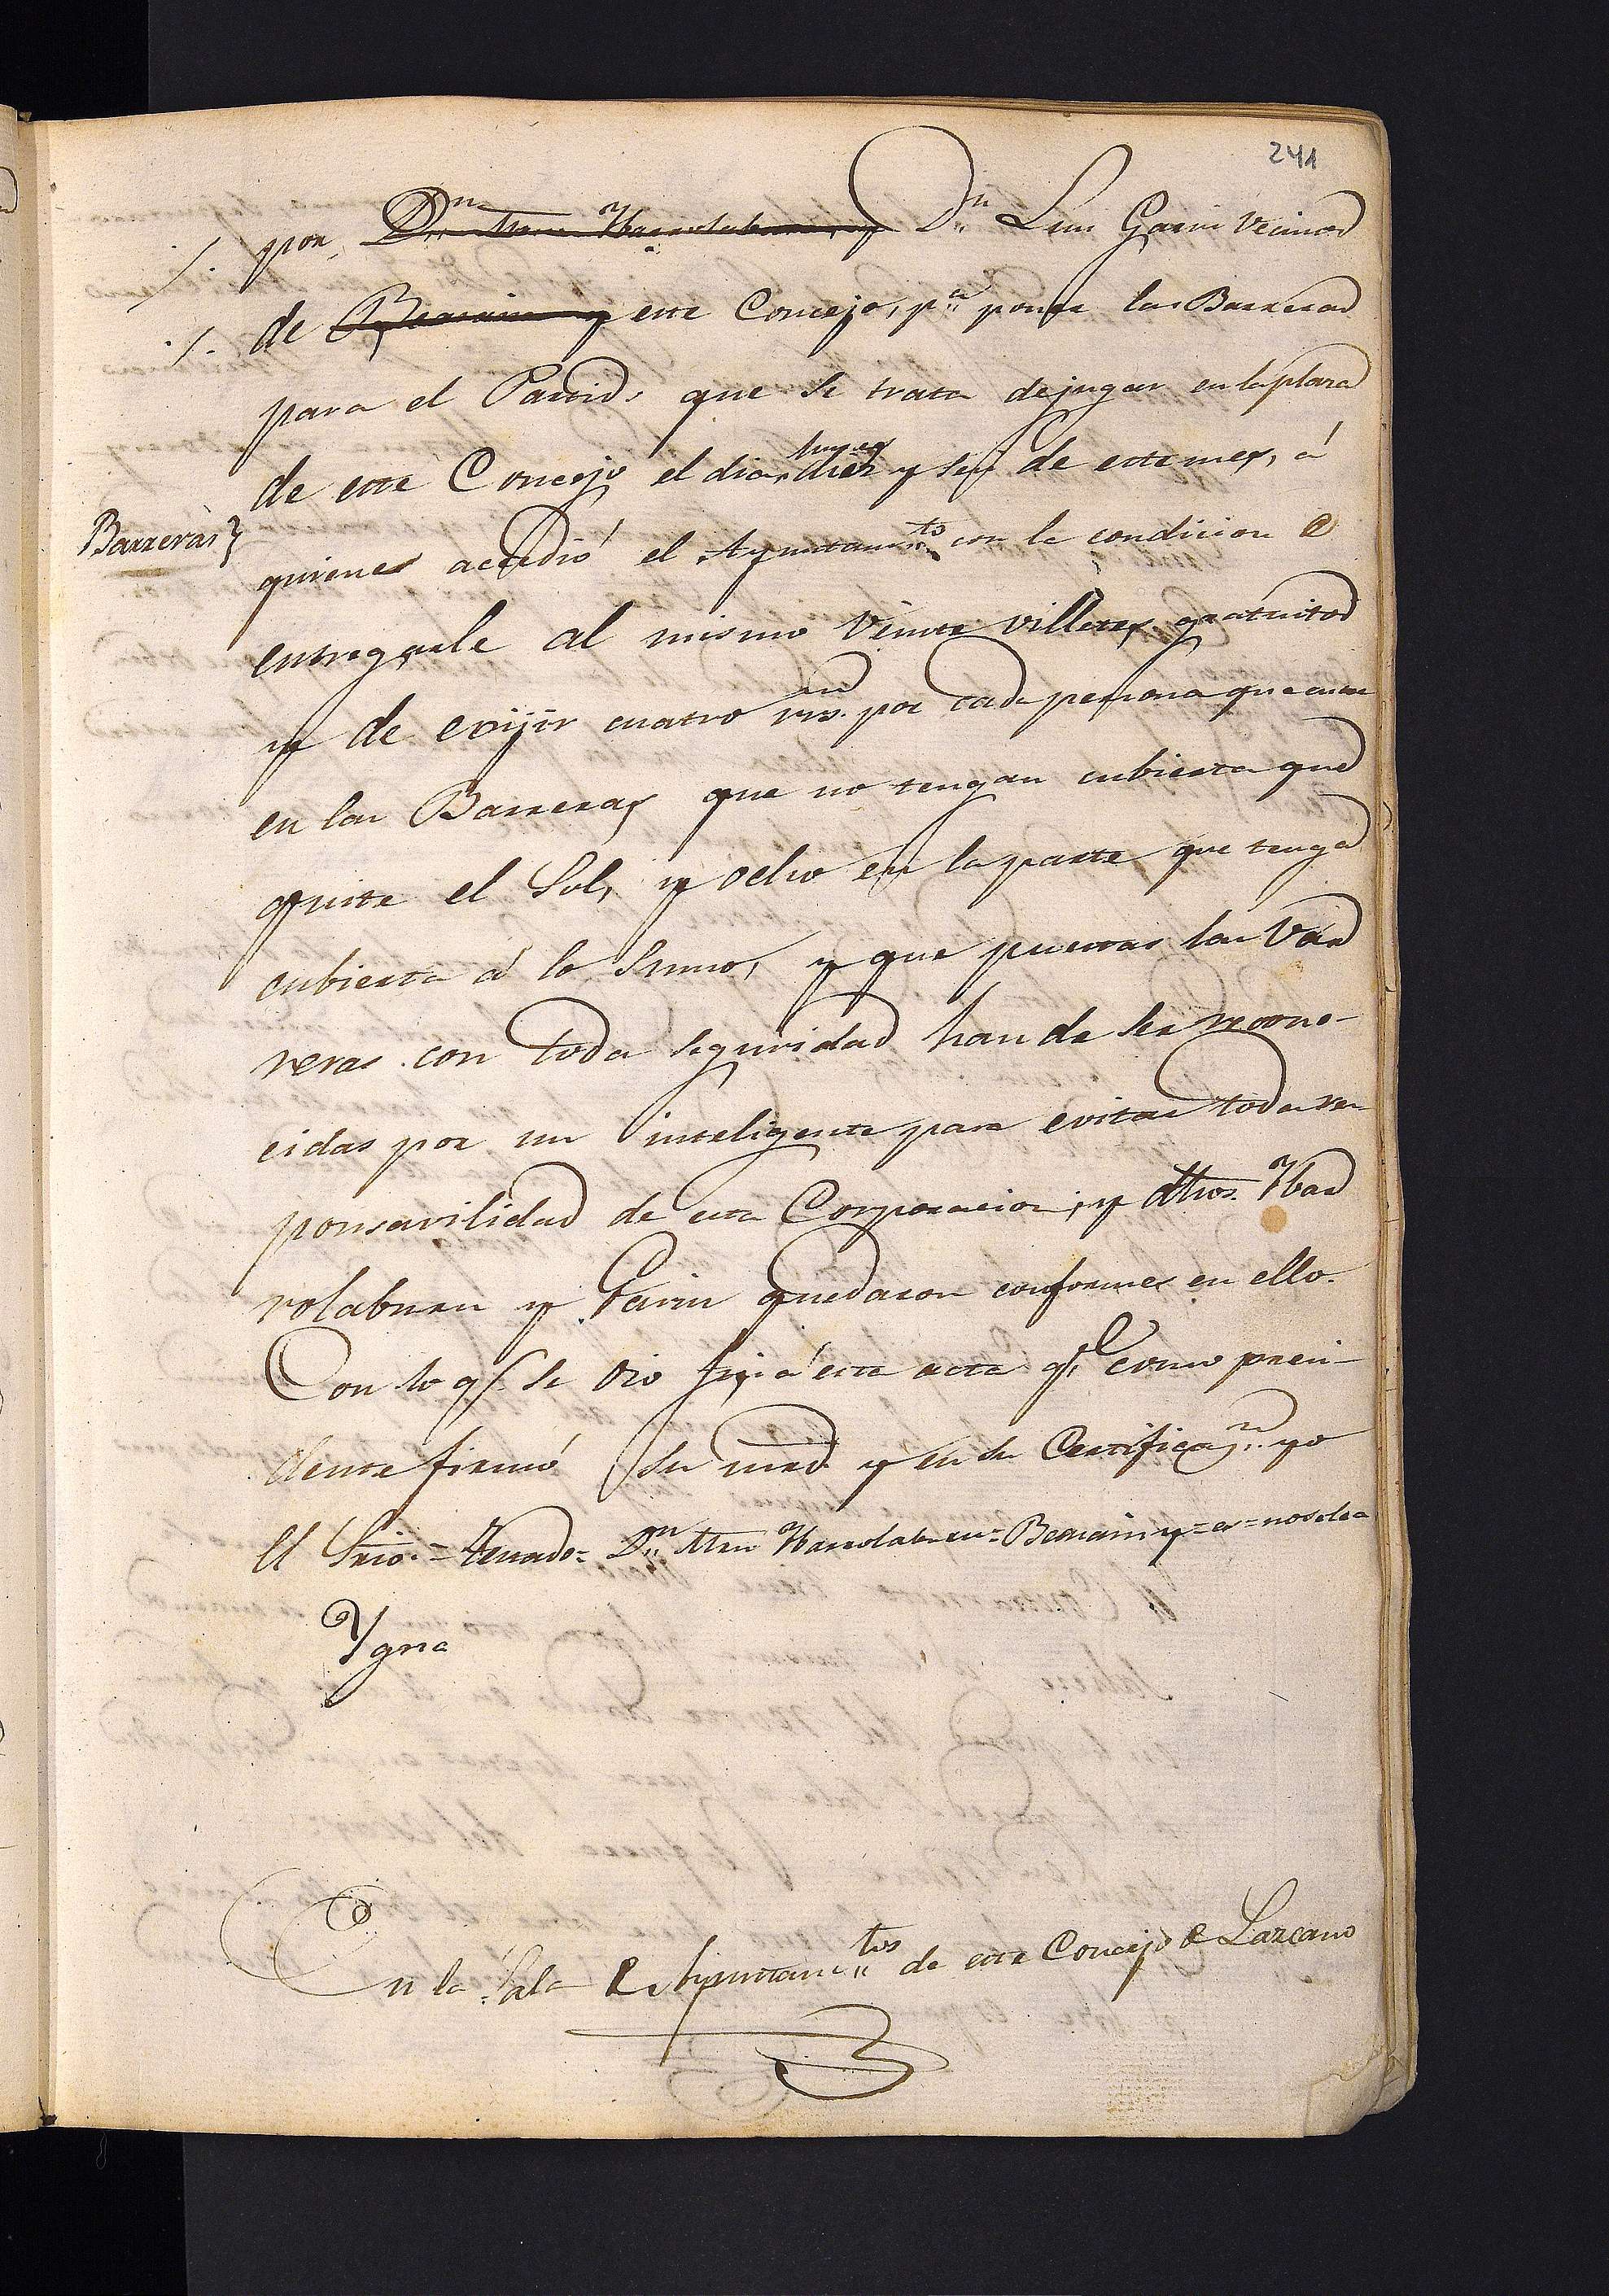 241
por, D.n Mrn. Ybarrolaburu, y D.n Luis Garin vecinos
de Beasain y este Concejo, p.a poner las Barreras
para el Partido que se trata de jugar en la plaza
de este Concejo el dia lunes diez y seis de este mes, á
Barreras
quienes accedió el Ayuntam.to con la condicion de
entregarle al mismo veinte villetes gratuitos
y de exijir cuatro rrs. vn por cada persona que entre
en las Barreras que no tengan cubierta que
quite el Sol, y ocho en la parte que tenga
cubierta á lo Sumo, y que puestas las Var
reras con toda seguridad han de ser recono-
cidas por un inteligente para evitar toda res
ponsavilidad de esta Corporacion; y dhos. Ybar
rolaburu y Garin quedaron conformes en ello.
Con lo q.e se dio fin á esta acta q.e como presi-
dente firmó su mrd. y en su Certificaz.n yo
el Srio.= Texado= D.n Mrn Ybarrolaburu= Beasain y= es= no vale=
Ygna
En la Sala de Ayuntam.tos de este Concejo de Lazcano